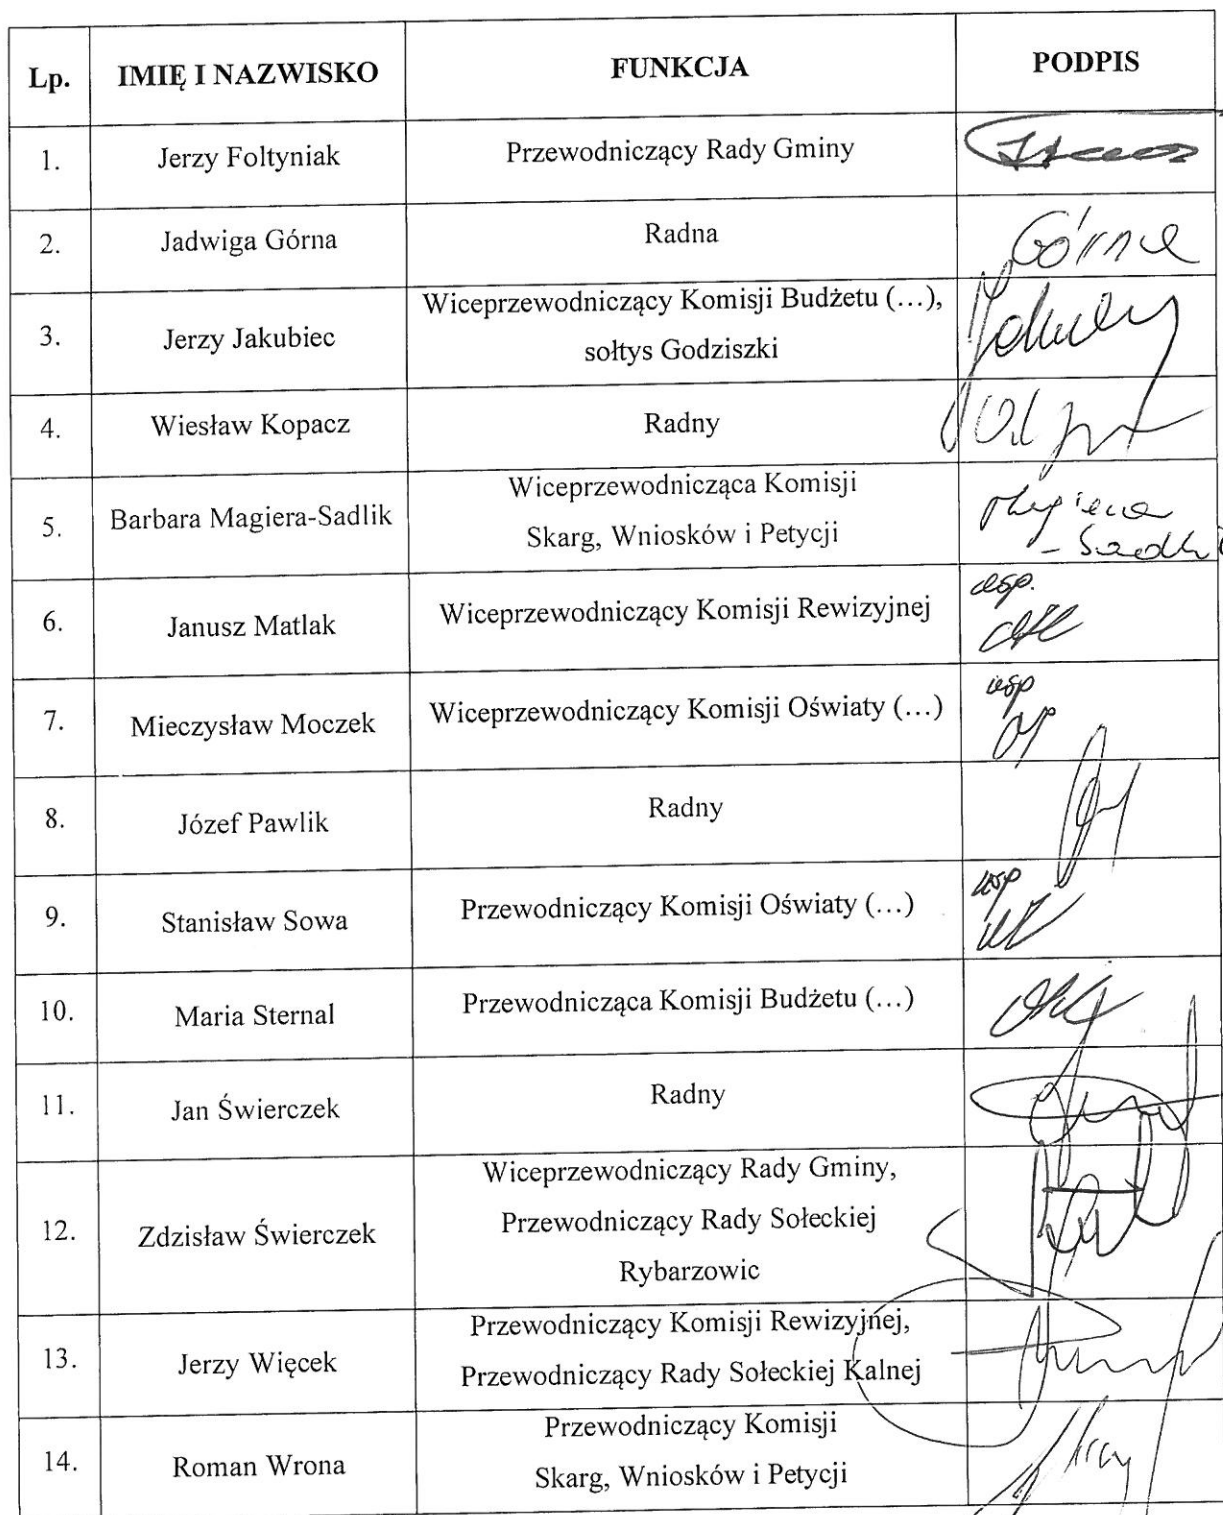 Lp. IMIĘ I NAZWISKO FUNKCJA PODPIS
1. Jerzy Foltyniak Przewodniczący Rady Gminy
2. Jadwiga Górna Radna Górna
3. Jerzy Jakubiec Wiceprzewodniczący Komisji Budżetu (…),
sołtys Godziszki
4. Wiesław Kopacz Radny
5. Barbara Magiera-Sadlik Wiceprzewodnicząca Komisji
Skarg, Wniosków i Petycji
6. Janusz Matlak Wiceprzewodniczący Komisji Rewizyjnej
7. Mieczysław Moczek Wiceprzewodniczący Komisji Oświaty (…)
8. Józef Pawlik Radny
9. Stanisław Sowa Przewodniczący Komisji Oświaty (…)
10. Maria Sternal Przewodnicząca Komisji Budżetu (…)
11. Jan Świerczek Radny
12. Zdzisław Świerczek Wiceprzewodniczący Rady Gminy,
Przewodniczący Rady Sołeckiej
Rybarzowic
13. Jerzy Więcek Przewodniczący Komisji Rewizyjnej,
Przewodniczący Rady Sołeckiej Kalnej
14. Roman Wrona Przewodniczący Komisji
Skarg, Wniosków i Petycji